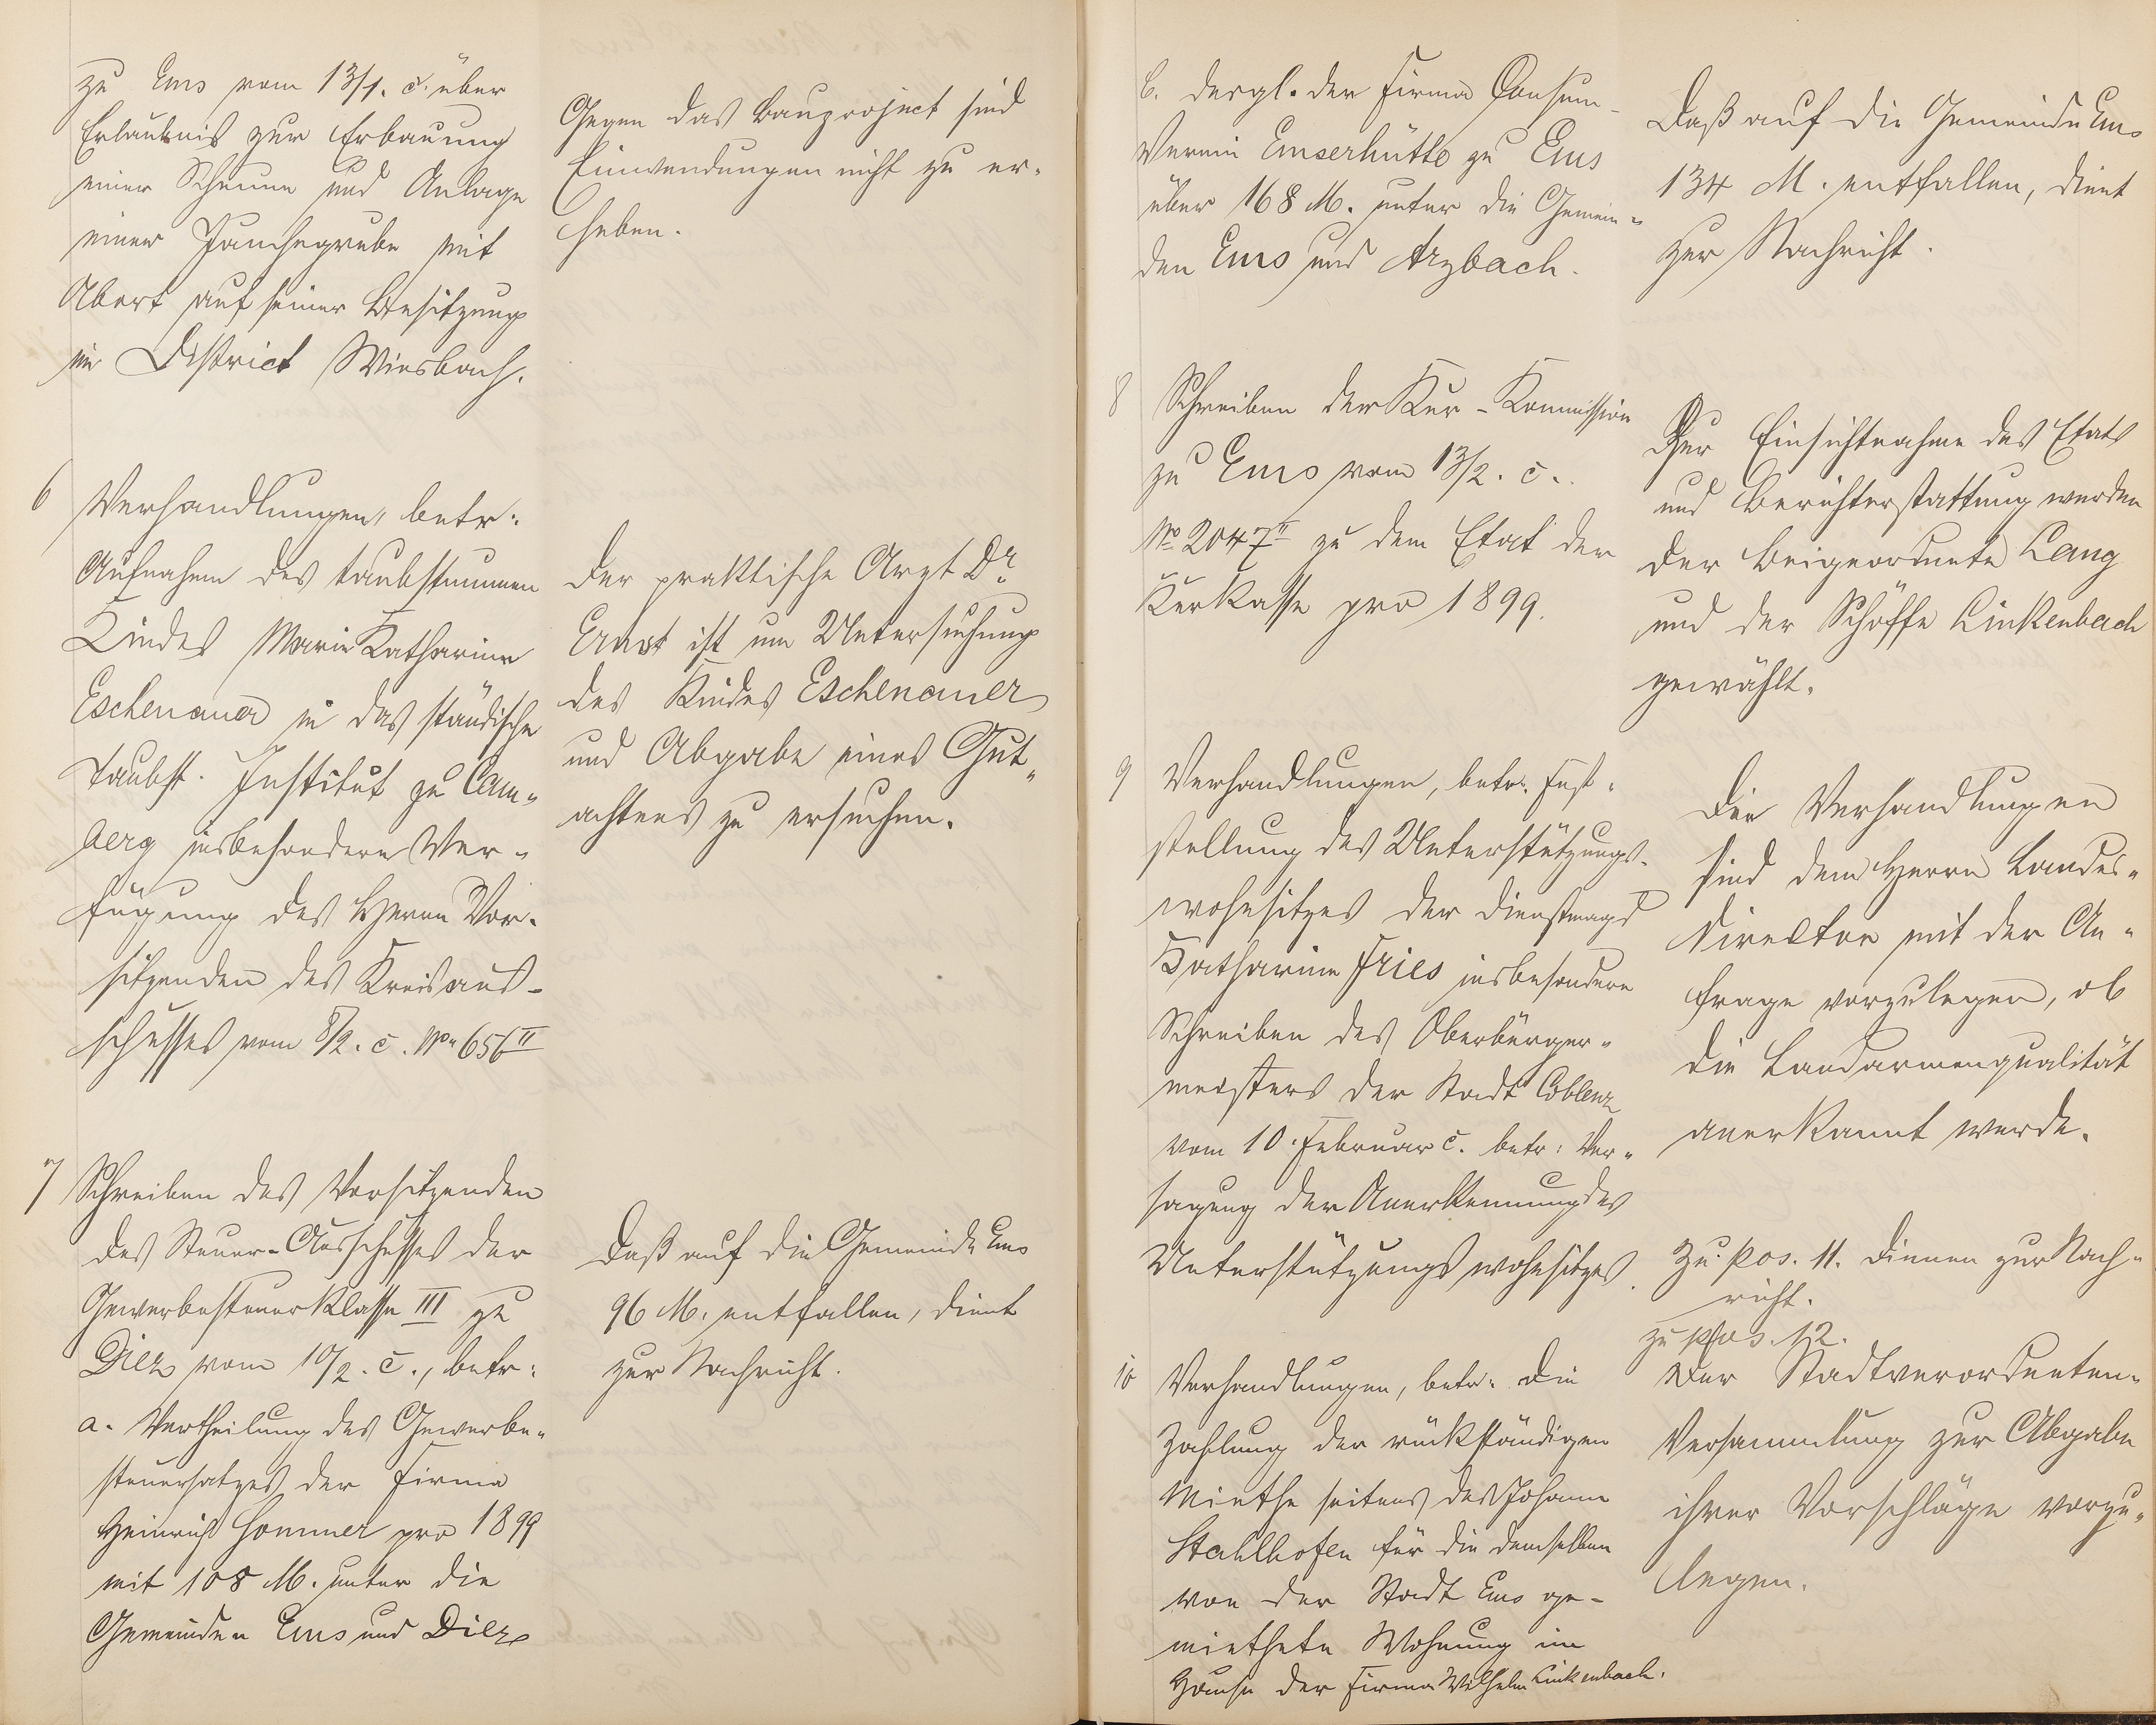 zu Ems vom 13/1. c. über
Erlaubnis zur Erbauung
einer Scheune und Anlage
einer Jauchegrube mit
Abort auf seiner Besitzung
im District Wiesbach.
Gegen das Bauproject sind
Einwendungen nicht zu er-
heben.
6 Verhandlungen, betr.
Aufnahme des taubstummen
Kindes Marie Katharine
Eschenauer in das ständische
Taubst. Institut zu Cam-
berg insbesondere Ver-
fügung des Herrn Vor-
sitzenden des Kreisaus-
schusses vom 8/2. c. No 656 II
Der praktische Arzt Dr.
Ernst ist um Untersuchung
des Kindes Eschenauer
und Abgabe eines Gut-
achtens zu ersuchen.
7 Schreiben des Vorsitzenden
des Steuer-Ausschusses der
Gewerbesteuerklasse III zu
Diez vom 10/2. c., betr:
a. Vertheilung des Gewerbe-
steuersatzes der Firma
Heinrich Hommer pro 1899
mit 108 M. unter die
Gemeinden Ems und Diez
Daß auf die Gemeinde Ems
96 M. entfallen, dient
zur Nachricht.
b. dergl. der Firma Consum-
Verein Emserhütte zu Ems
über 168 M. unter die Gemein-
den Ems und Arzbach.
Daß auf die Gemeinde Ems
134 M. entfallen, dient
zur Nachricht.
8 Schreiben der Kur-Kommission
zu Ems vom 13/2. c.
No 2047 II zu dem Etat der
Kurkasse pro 1899.
Zur Einsichtnahme des Etats
und Berichterstattung werden
der Beigeordnete Lang
und der Schöffe Linkenbach
gewählt.
9 Verhandlungen, betr. Fest-
stellung des Unterstützungs-
wohnsitzes der Dienstmagd
Katharine Fries insbesondere
Schreiben des Oberbürger-
meisters der Stadt Coblenz
vom 10. Februar c. betr: Ver-
sagung der Anerkennung des
Unterstützungswohnsitzes.
Die Verhandlungen
sind dem Herrn Landes-
director mit der An-
frage vorzulegen, ob
die Landarmenqualität
anerkannt werde.
zu pos. 11. dienen zur Nach-
richt.
zu pos. 12.
10 Verhandlungen, betr. die
Zahlung der rückständigen
Miethe seitens des Johann
Stahlhofen für die demselben
von der Stadt Ems ge-
miethete Wohnung im
Hause der Firma Wilhelm Linkenbach.
Der Stadtverordneten-
Versammlung zur Abgabe
ihrer Vorschläge vorzu-
legen.